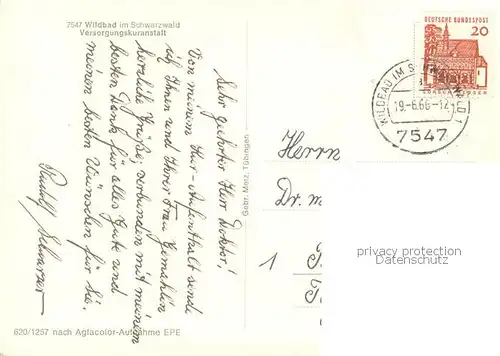 7547 Wildbad im Schwarzwald
Versorgungskuranstalt
Sehr geehrter Herr Doktor!
Von meinem Kur-Aufenthalt sende
ich Ihnen und Ihrer Frau Gemahlin
herzliche Grüße, verbunden mit meinem
besten Dank für alles Gute und
meinen besten Wünschen für Sie.
Rudolf
620/1257 nach Agfacolor-Aufnahme EPE
Gebr. Metz, Tübingen
DEUTSCHE BUNDESPOST
20
WILDBAD IM
19.-6.66-12
7547
Herrn
Dr. m
1
privacy protection
Datenschutz